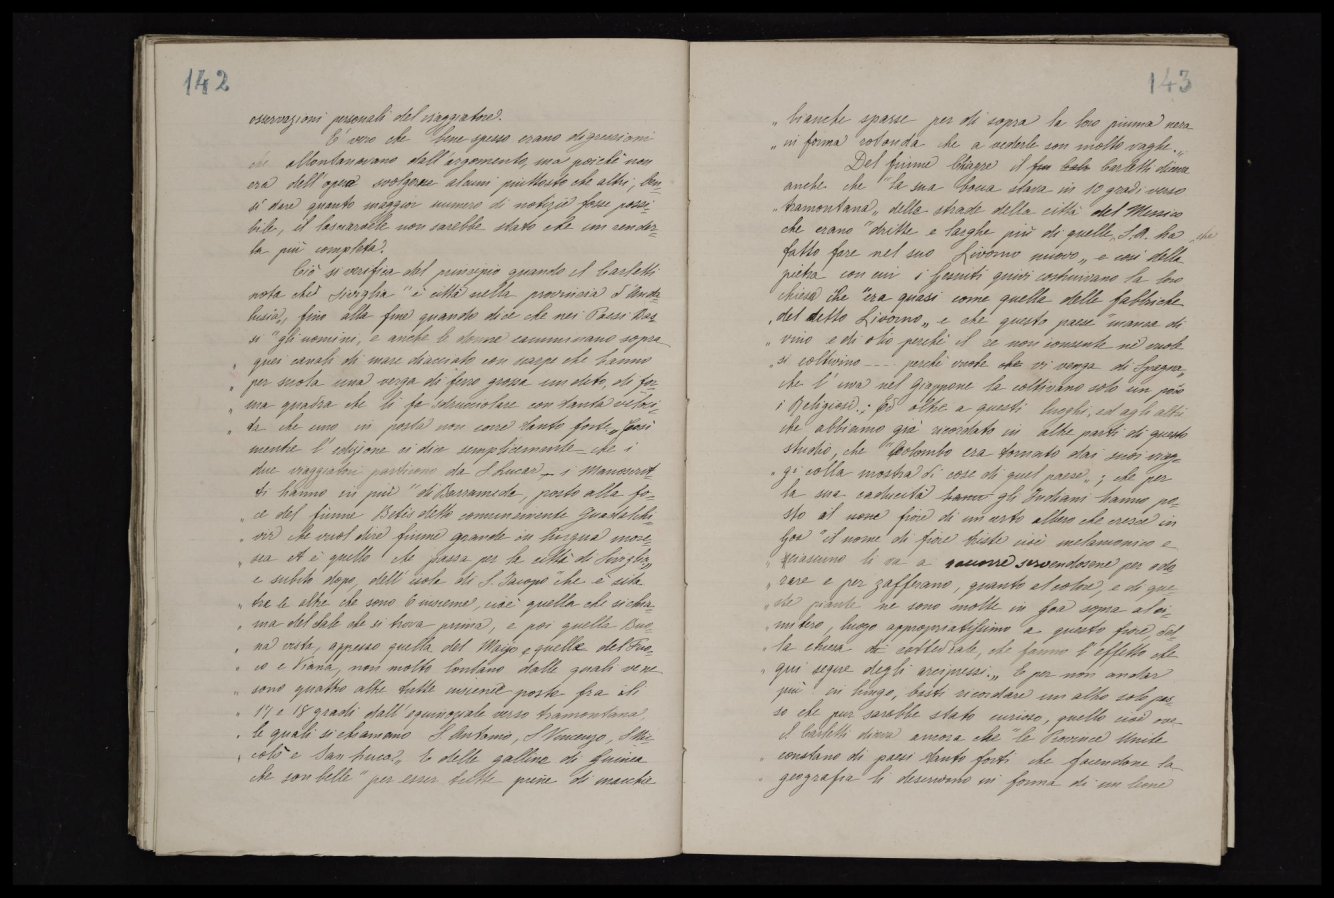 142
osservazioni personali del viaggiatore.
E' vero che bene spesso erano digressioni
che allontanavano dall'argomento, ma poichè non
era dell'opera svolgere alcuni piuttosto che altri, ben-
sì dare quanto maggior numero di notizie fosse possi-
bile, il lasciarcelle non sarebbe stato che un render-
la più completa.
Ciò si verifica dal principio quando il Carletti
nota che Siviglia "è città nella provincia d'Anda-
lusia„ fino alla fine quando dice che nei Paesi Bas-
si "gli uomini, e anche le donne camminano sopra
" quei canali di mare diacciato con scarpe che hanno
" per suola una verga di ferro grossa un dito, di for-
" ma quadra che li fa sdrucciolare con tanta veloci-
" tà che uno in posta non corre tanto forte„ Così
mentre l'edizione ci dice semplicemente che i
due viaggiatori partirono da S. Lucar, i Manoscrit-
ti hanno in più "di Barrameda, posto alla fo-
" ce del fiume Betis detto comunemente Guadalchi-
" vir che vuol dire fiume grande in lingua more-
" sca et è quello che passa per la città di Siviglia„
e subito dopo, dell'isola di S. Jacopo "che è sita
" tra le altre che sono 6 insieme, cioè quella che si chia-
" ma del Sale che si trova prima, e poi quella Buo-
" na vista, appresso quella del Mayo e quelle del Fuo-
" co e Viana, non molto lontano dalle quali ve ne
" sono quattro altre tutte insieme poste fra li
" 17 e 18 gradi dall'equinoziale verso tramontana,
" le quali si chiamano S. Antonio, S. Vincenzo, S. Ni-
" colò e Santa Lucia„ E delle galline di Guinea
che son belle "per esser tutte piene di macchie
143
" bianche sparse per di sopra la loro piuma nera
" in forma rotonda che a vederle son molto vaghe.„
Del fiume Chagre il Carletti diceva
anche che "la sua bocca stava in 10 gradi verso
" tramontana„ della strade della città del Messico
che erano "dritte e larghe più di quelle, che S. A. ha
fatto fare nel suo Livorno nuovo„ e così della
pietra con cui i Gesuiti quivi costruivano la loro
chiesa che "era quasi come quella delle fabbriche
" del detto Livorno„ e che questo paese "manca di
" vino e di olio perchè il re non consente nè vuole
" si coltivino --- perchè vuole che vi venga di Spagna„
che l'uva nel Giappone la coltivano solo un poco
i Religiosi.; Ed oltre a questi luoghi, ed agli altri
che abbiamo già ricordato in altre parti di questo
studio, che "Colombo era tornato dai suoi viag-
" gi colla mostra di cose di quel paese„; che per
la sua caducità gli Indiani hanno po-
sto al fiore di un certo albero che cresce in
Goa "il nome di fiore triste cioè melanconico e
" ciascuno li va a raccorre servendosene per odo
" rare e per zafferano, quanto al colore, e di que-
" ste piante ne sono molte in Goa sopra al ci-
" mitero, luogo appropriatissimo a questo fiore, del-
" la chiesa di cattedrale, che fanno l'effetto che
" qui segue degli arcipressi.„ E per non andar
più in lungo, basti ricordare un altro solo pas-
so che pur sarebbe stato curioso, quello cioè ove
il Carletti diceva ancora che "le Provincie Unite
" constano di paesi tanto forti che facendone la
" geografia li descrivono in forma di un leone